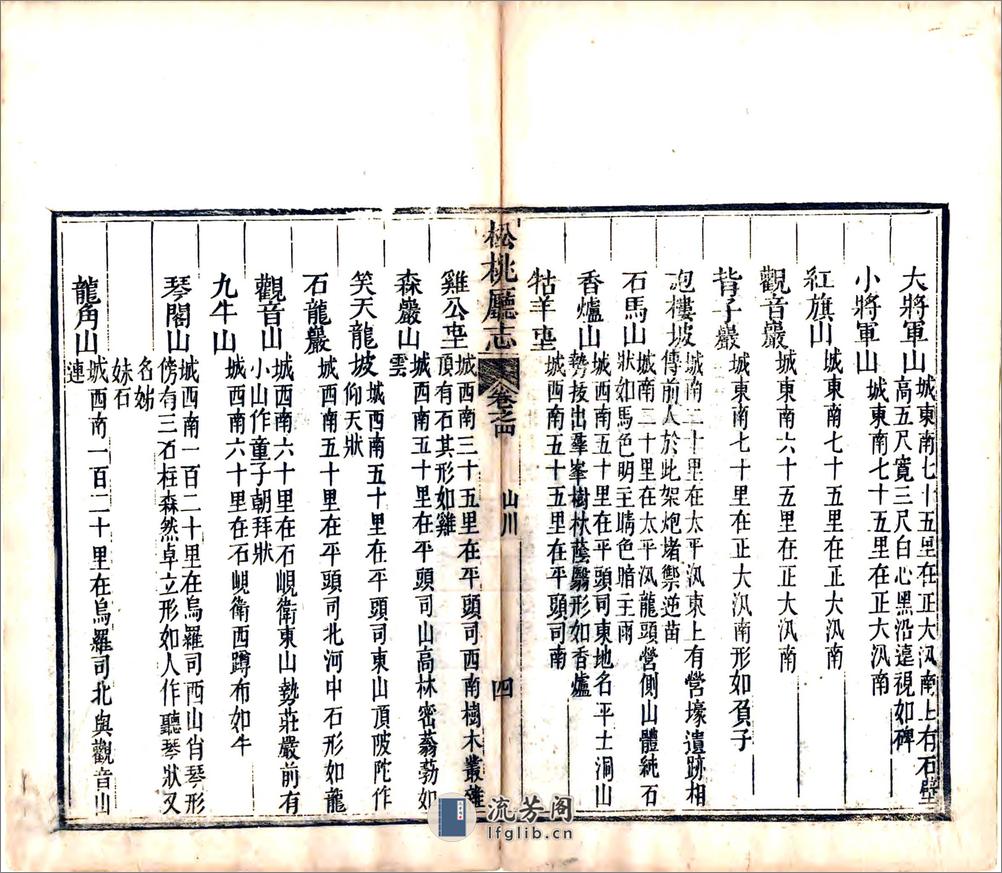 大將軍山城東南七十五里在正大汛南上有石壁
高五尺寬三尺白心黑沿遠視如碑
小將軍山城東南七十五里在正大汛南
紅旗山城東南七十五里在正大汛南
觀音巖城東南六十五里在正大汛南
背子巖城東南七十里在正大汛南形如負子
砲樓坡城南二十里在太平汛東上有營壕遺跡相
傳前人於此架炮堵禦逆苗
石馬山城南二十里在太平汛龍頭營側山體純石
狀如馬色明主晴色暗主雨
香爐山城西南五十里在平頭司東地名平士洞山
勢拔出羣峯樹林蔭翳形如香爐
牯羊坉城西南五十五里在平頭司南
松桃廳志
卷之四
山川
四
雞公坉城西南三十五里在平頭司西南樹木叢雜
頂有石其形如雞
森巖山城西南五十里在平頭司山高林密蓊勃如
雲
笑天龍坡城西南五十里在平頭司東山頂陂陀作
仰天狀
石龍巖城西南五十里在平頭司北河中石形如龍
觀音山城西南六十里在石峴衛東山勢莊嚴前有
小山作童子朝拜狀
九牛山城西南六十里在石峴衛西蹲布如牛
琴閣山城西南一百二十里在烏羅司西山肖琴形
傍有三石柱森然卓立形如人作聽琴狀又
名姊
妹石
龍角山城西南一百二十里在烏羅司北與觀音山
連
流芳阁
lfglib.cn